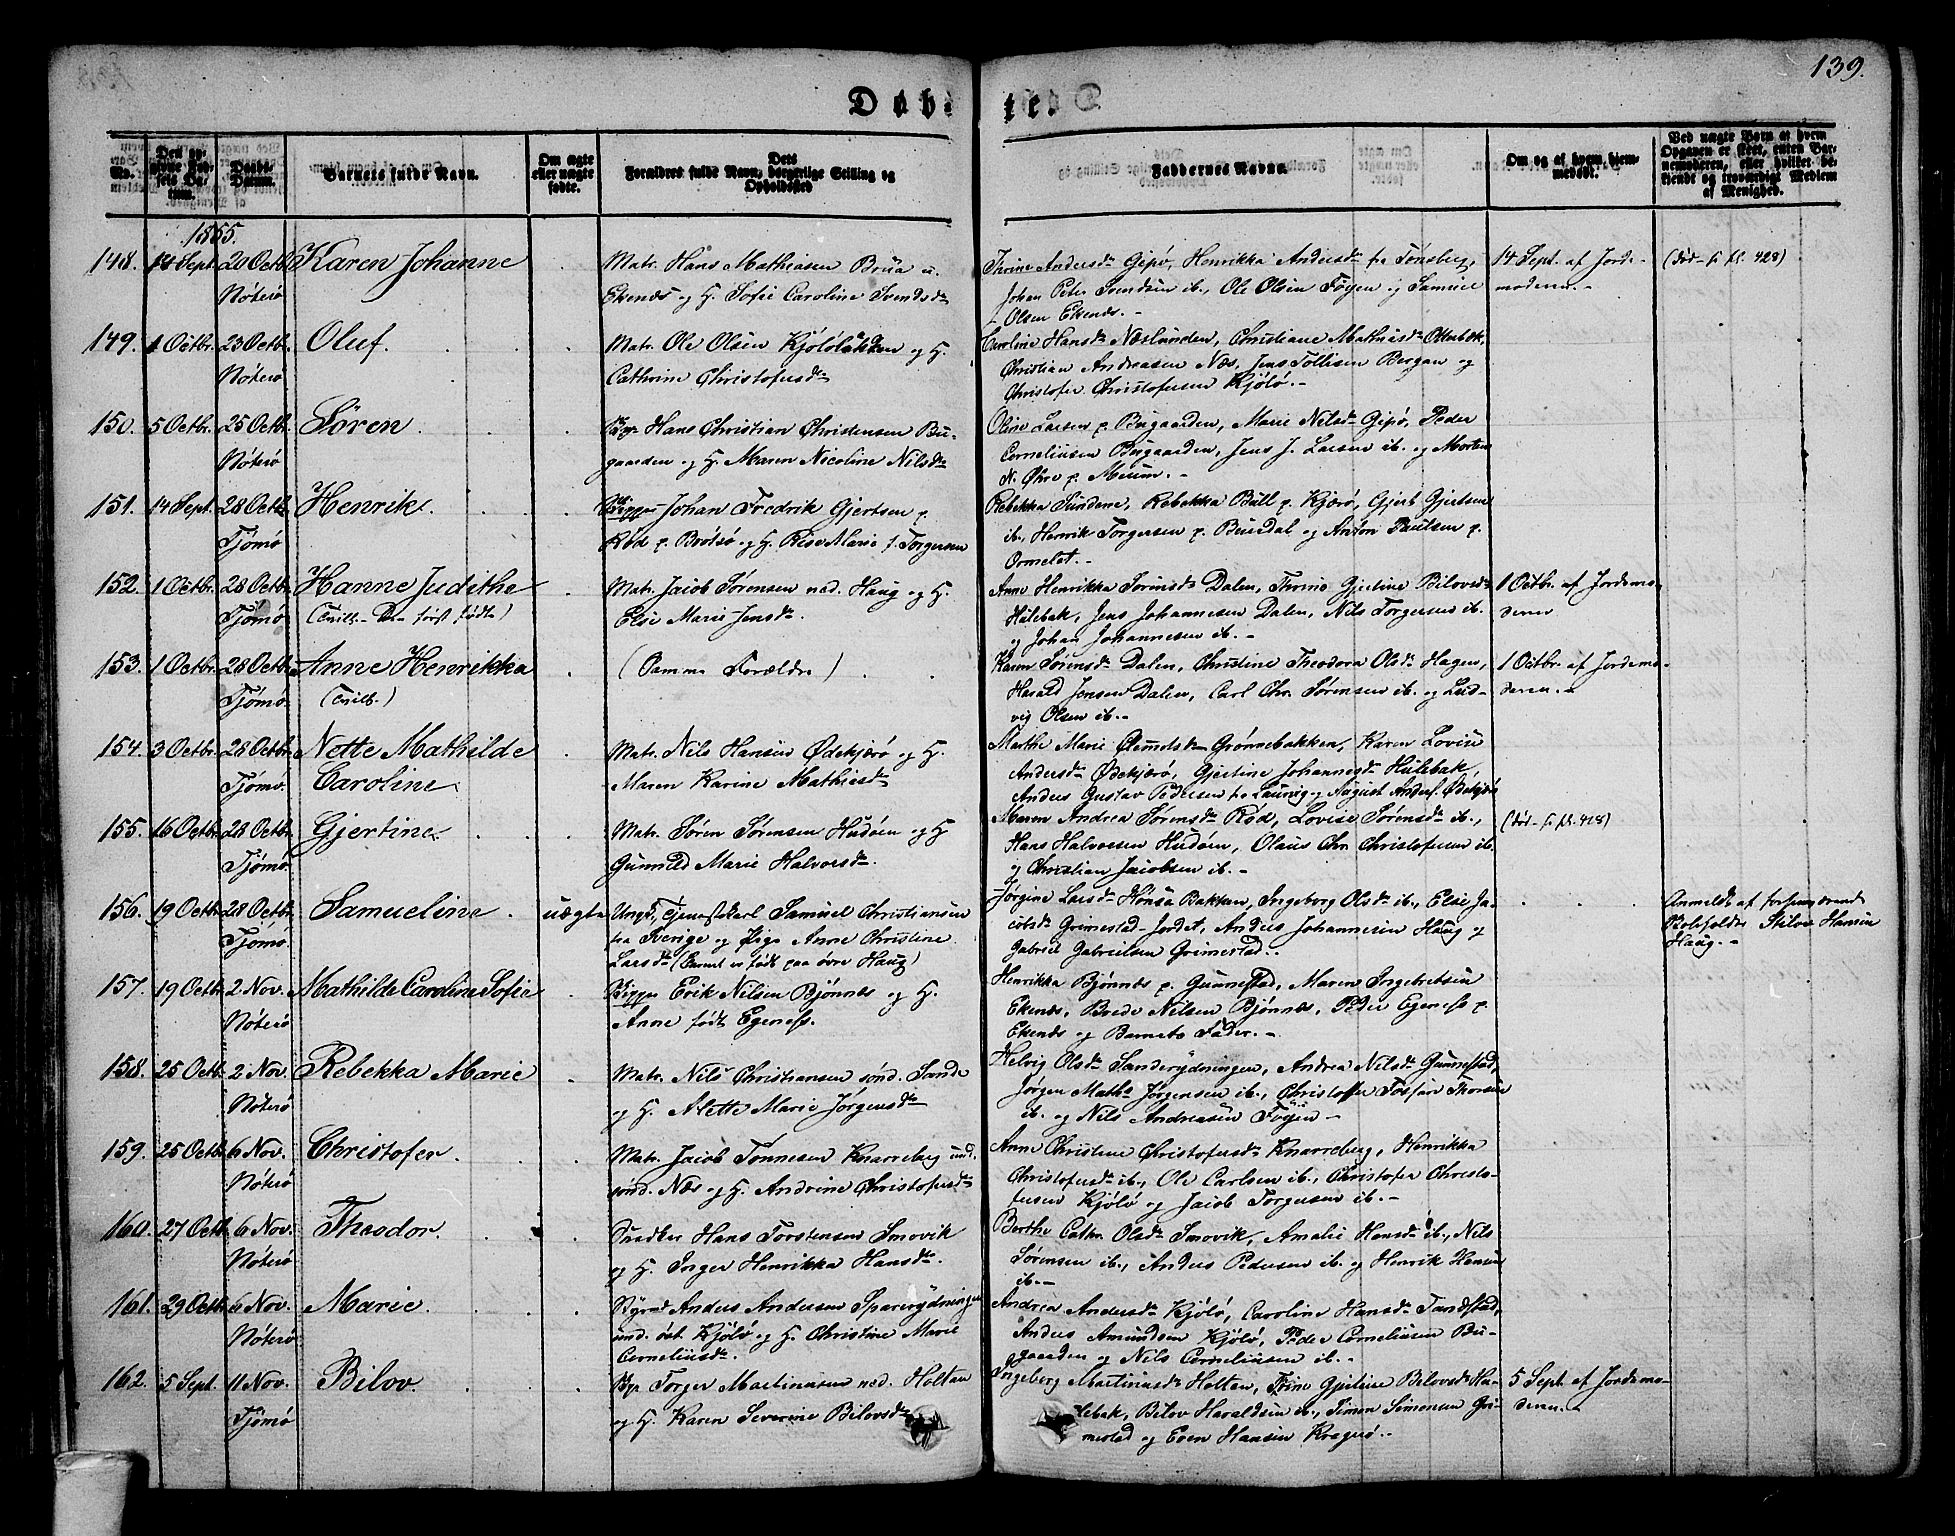 139.
Døbte
No.
Den opgivne Fødsels Datum.
Daabs-Datum.
Barnets fulde Navn.
Om ægte eller uægte fødte.
Dets Forældres fulde Navn, borgerlige Stilling og Opholdssted
Faddernes Navne
Om og af hvem hjemmedøbt.
Ved uægte Børn af hvem Opgaven er skeet, enten Barnemoderen, eller hvilket bekiendt og troværdigt Medlem af Menighed.
1855.
148. 14 Sept. 20 Octb. Karen Johanne
Nøterø
Matr. Hans Mathiasen Brua u.
Ekenes og H. Sofie Caroline Svendsdr
Thrine Andersdr Gipø, Henrikka Andersdr fra Tønsberg,
Johan Peter Svendsen ib., Ole Olsen Føyen og Samuel
Olsen Ekenes. -
14 Sept. af Jorde-
moderen. -
(død - fr. pl. 428)
149. 1 Octbr. 23 Octb. Oluf.
Nøterø
Matr. Ole Olsen Kjøløbakken og H.
Cathrine Christofersdr
Caroline Hansdr Næslunden, Christiane Mathiasdr Otterbæk,
Christian Andreasen Næs, Jens Tollisen Bergan og
Christofer Christofersen Kjølø. -
150. 5 Octbr. 25 Octb. Søren
Nøterø
Byr. Hans Christian Christensen Bu-
gaarden og H. Maren Nicoline Nilsdr
Oline Larsen p. Bugaarden, Marie Nilsdr Gipø, Peder
Corneliusen Bugaarden, Jens J. Larsen ib. og Morten
N. Øhre p. Meum. -
151. 14 Sept. 28 Octb. Henrik.
Tjømø
Skipper Johan Fredrik Gjertsen p.
Rød p. Brøtsø og H. Lise Marie f. Torgersen
Rebekka Sundene, Rebekka Bull p. Kjørø, Gjert Gjertsen
ib., Henrik Torgersen p. Buerdal og Anton Paulsen p.
Ormelet. -
152. 1 Octbr. 28 Octb. Hanne Judithe
Tjømø (Tvill. - Den først fødte)
Matr. Jacob Sørensen ned. Haug og H.
Else Marie Jensdr.
Anne Henrikka Sørensdr Dalen, Thrine Gjertine Bilovsdr
Hulebak, Jens Johannesen Dalen, Nils Torgersen ib.
og Johan Johannesen ib. -
1 Octbr. af Jordemo-
deren
153. 1 Octbr. 28 Octb. Anne Henrikka
Tjømø. (Tvill.)
(Samme Forældre)
Karen Sørensdr Dalen, Christine Theodora Olsdr Hagen,
Harald Jensen Dalen, Carl Chr. Sørensen ib. og Lud-
vig Olsen ib. -
1 Octbr. af Jordemo-
deren. -
154. 3 Octbr. 28 Octb. Nette Mathilde
Tjømø. Caroline
Matr. Nils Hansen Ødekjærø og H.
Maren Karine Mathisdr
Marthe Marie Grønnebakken, Karen Lovise
Andersdr Ødekjærø, Gjertine Johannesdr Hulebak
Anders Gustav Pedersen fra Laurvig og August Anders. Ødekjærø
155. 16 Octbr. 28 Octb. Gjertine
Tjømø.
Matr. Søren Sørensen Hudøen og H.
Gunnild Marie Halvorsdr.
Maren Andrea Sørensdr Rød, Lovise Sørensdr ib.,
Hans Halvorsen Hudøen, Olaus Chr. Christofersen ib.
og Christian Jacobsen ib. -
(død - fr. pl. 428)
156. 19 Octb. 28 Octb. Samueline. uægte
Tjømø.
Ungk. Tjenestekarl Samuel Christiansen
fra Sverige og Pige Anne Christine
Larsdr (Barnet er født paa øvre Haug)
Jørgine Larsdr Hønsø Bakken, Ingeborg Olsdr ib., Else Ja-
cobsdr Grimestad-Jordet, Anders Johannesen Haug og
Gabriel Gabrielsen Grimestad. -
Anmeldt af forhenværende
Stilov Hansen
Haug. -
157. 19 Octb. 2 Nov. Mathilde Caroline Sofie
Nøterø
Skipper Erik Nilsen Bjønnes og H.
Anne født Egeness.
Henrikka Bjønnes p. Gunnestad, Maren Ingebretsen
Ekenes, Brede Nilsen Bjønnes, Peder Egeness p.
Ekenes og Barnets Fader. -
158. 25 Octb. 2 Nov. Rebekka Marie
Nøterø
Matr. Nils Christiansen sønd. Sande
og H. Alette Marie Jørgensdr
Helvig Olsdr Sanderydningen, Andrea Nilsdr Gunnestad,
Jørgen Maths Jørgensen ib., Christoffer Thorsen
ib. og Nils Andreasen Føyen -
159. 25 Octb. 6 Nov. Christofer.
Nøterø
Matr. Jacob Tønnesen Knarreberg und.
sønd. Næs og H. Andrine Christofersdr
Anne Christine Christofersdr Knarreberg, Henrikka
Christofersdr ib., Ole Carlsen ib., Christofer Christo-
fersen Kjølø og Jacob Torgersen ib. -
160. 27 Octb. 6 Nov. Theodor.
Nøterø
Snedker Hans Torstensen Smovik
og H. Inger Henrikka Hansdr.
Berthe Cathr. Olsdr Smovik, Amalie Hansdr ib., Nils
Sørensen ib., Anders Pedersen ib. og Henrik Hansen
ib. -
161. 29 Octb. 6 Nov. Marie.
Nøterø
Styrmd Anders Andersen Sparerydningen
und. øst. Kjølø og H. Christine Marie
Corneliusdr.
Andrea Andersdr Kjølø, Caroline Hansdr Tandstad,
Anders Amundsen Kjølø, Peder Corneliusen Bu-
gaarden og Nils Corneliusen ib. -
162. 5 Sept. 11 Nov. Bilov.
Tjømø
Byr. Torger Martinusen ned. Holtan
og H. Karen Severine Bilovsdr
Ingeborg Martinusdr Holten, Trine Gjertine Bilovsdr Hu-
lebak, Bilov Haraldsen ib., Simon Simonsen Gri-
mestad og Even Hansen Kragerø. -
5 Sept. af Jordemo-
deren. -